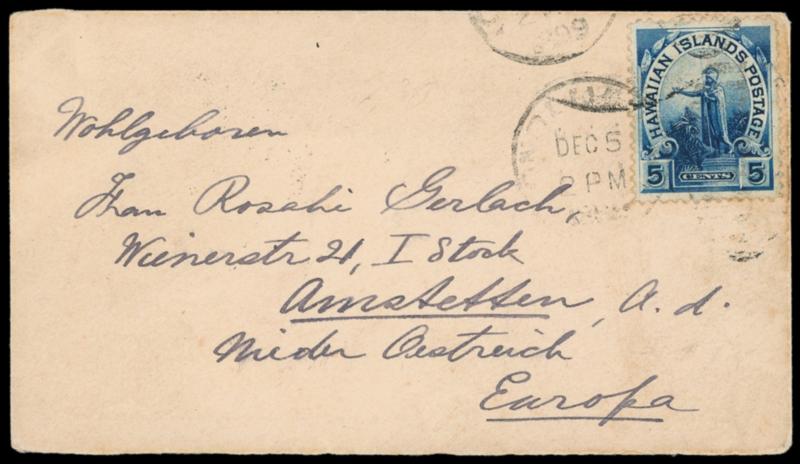 1899
HAWAIIAN ISLANDS POSTAGE
5 CENTS 5
DEC 5
2 PM
Wohlgeboren
Frau Rosalie Gerlach
Wienerstr 21, I Stock
Amstetten, a. d.
Nieder Oestreich
Europa